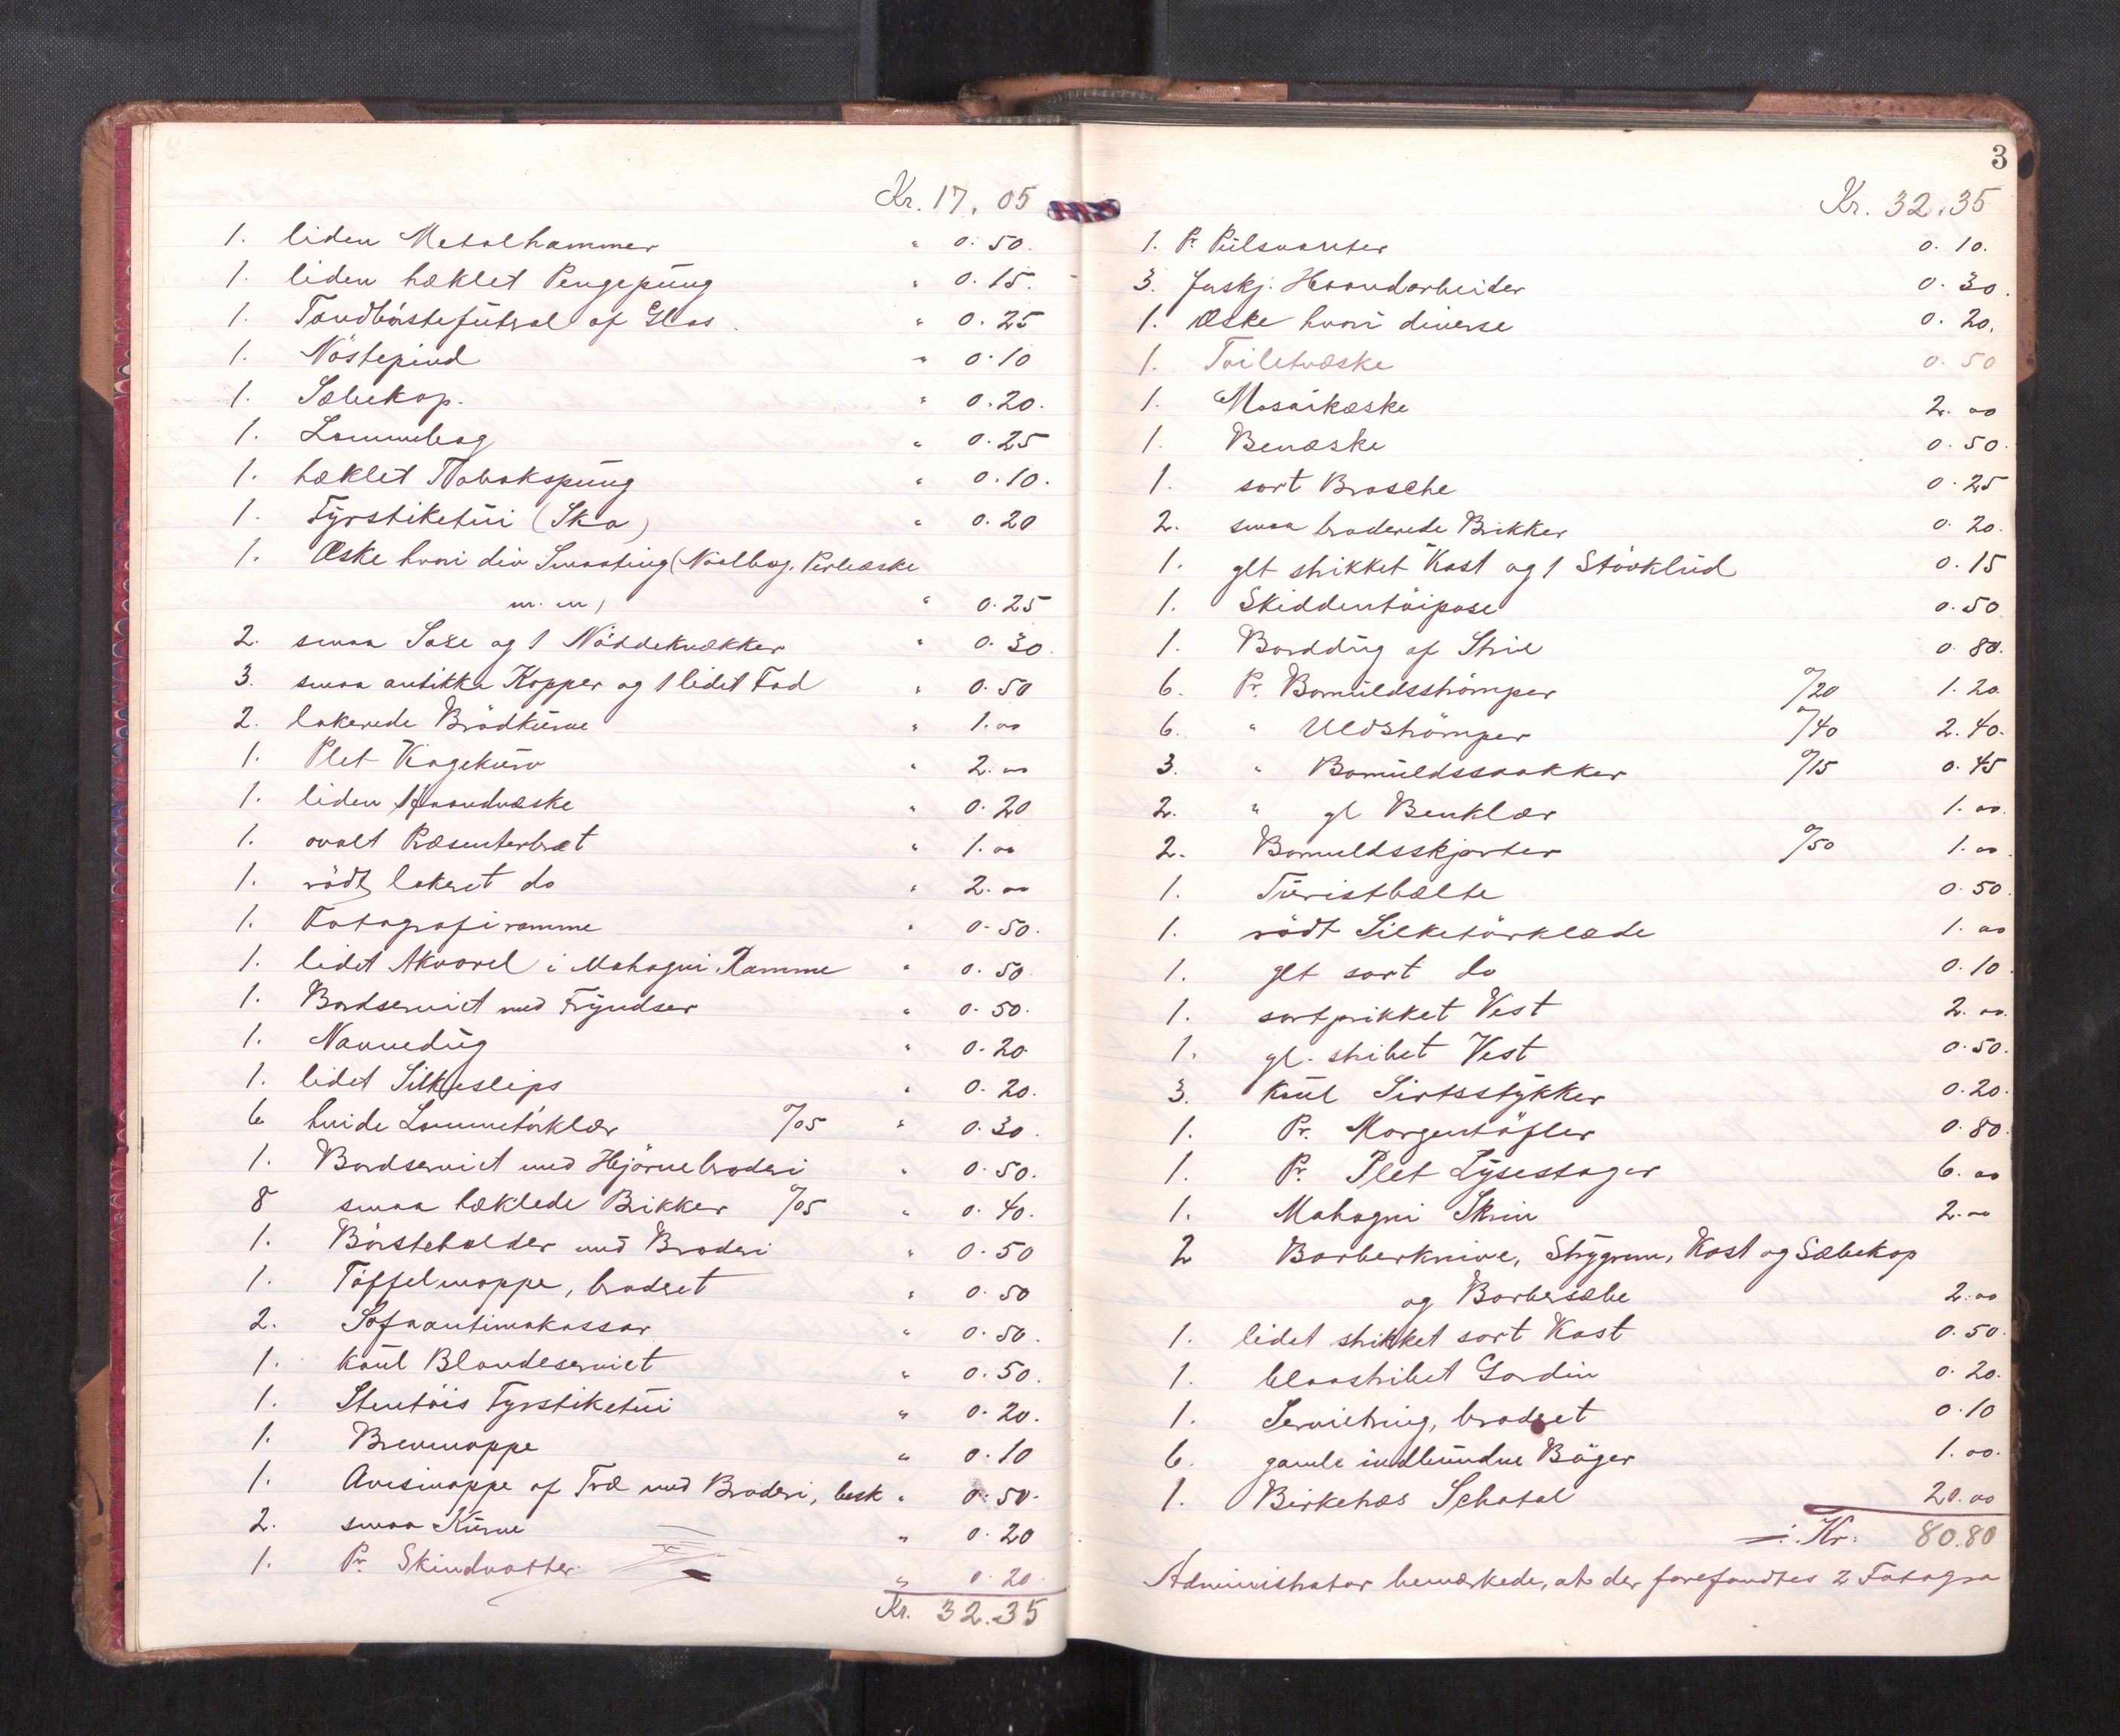 Kr. 17.05
1. liden Metalhammer " 0.50.
1. liden hæklet Pengepung " 0.15.
1. Tandbørstefutral af Glas. " 0.25
1. Nøstepind " 0.10
1. Sæbekop. " 0.20.
1. Lommebog " 0.25
1. hæklet Tobakspung " 0.10.
1. Fyrstiketui (Sko) " 0.20
1. Æske hvori div Smaating (Naalbog. Perleæske
m. m) " 0.25
2. smaa Saxe og 1 Nøddeknækker " 0.30.
3. smaa antikke Kopper og 1 lidet Fad " 0.50
2. lakerede Brödkurve " 1.00
1. Plet Kagekurv " 2.00
1. liden Haandvæske " 0.20
1. ovalt Præsenterbræt " 1.00
1. rödt lakeret do " 2.00
1. Fotografiramme " 0.50.
1. lidet Akvarel i Mahogni Ramme " 0.50
1. Bordserviet med Fryndser " 0.50.
1. Navnedug " 0.20.
1. lidet Silkeslips " 0.20.
6 hvide Lommetörklær %05 " 0.30.
1. Bordserviet med Hjörnebroderi " 0.50.
8 smaa hæklede Brikker %05 " 0.40.
1. Börsteholder med Broderi " 0.50
1. Töffelmappe, broderet " 0.50
2. Sofaantimakassar " 0.50.
1. koul Blondeserviet " 0.50.
1. Stentöis Fyrstiketui " 0.20.
1. Brevmappe " 0.10
1. Avismappe af Træ med Broderi, besk " 0.50.
2. smaa Kurve " 0.20
1. Pr. Skindvotter. " 0.20
Kr. 32.35
3
Kr. 32.35
1. Pr Pulsvanter 0.10.
3. forskj. Haandarbeider 0.30.
1. Æske hvori diverse 0.20.
1. Toiletvæske 0.50
1. Mosaikæske 2.00
1. Benæske 0.50.
1. sort Brosche 0.25
2. smaa broderede Brikker 0.20.
1. glt strikket Kast og 1 Stövklud 0.15
1. Skiddentöipose 0.50
1. Borddug af Strie 0.80.
6. Pr. Bomuldsströmper %20 1.20.
6. " Uldströmper %40 2.40.
3. " Bomuldssaakker %15 0.45
2. " gl Benklær 1.00.
2. Bomuldsskjorter %50 1.00.
1. Turistbælte 0.50.
1. rödt Silketörklæde 1.00
1. glt sort do 0.10.
1. sortprikket Vest 2.00.
1. gl. stribet Vest 0.50.
3. koul Sirtsstykker 0.20.
1. Pr. Morgentöfler 0.80.
1. Pr. Plet Lysestager 6.00
1. Mahogni Skrin 2.00
2 Barberknive, Strygrem, Kost og Sæbekop
og Barbersæbe 2.00
1. lidet strikket sort Kast 0.50.
1. blaastribet Gardin 0.20.
1. Servietring, broderet 0.10
6. gamle indbundne Böger 1.00.
1. Birketræs Schatol 20.00
Kr. 80.80
Administrator bemærkede, at der forefandtes 2 Fotogra